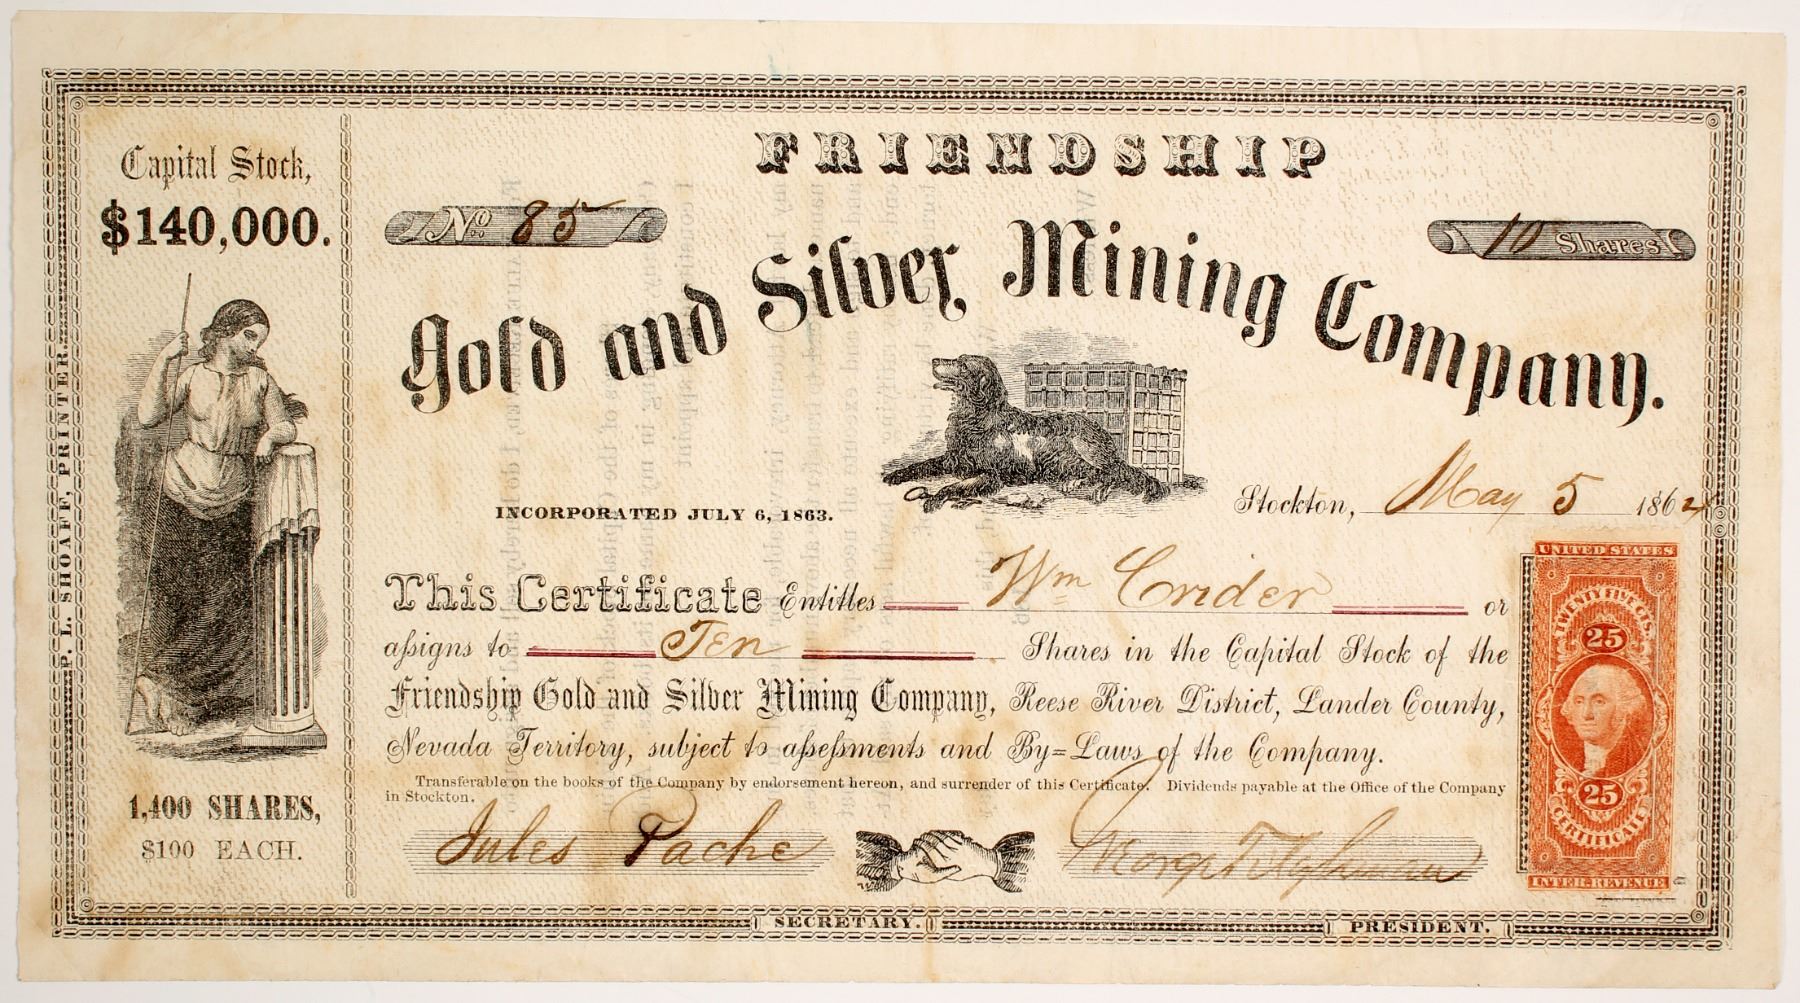 FRIENDSHIP
Gold and Silver Mining Company.
Capital Stock,
$140,000.
No. 85
10 Shares
INCORPORATED JULY 6, 1863.
Stockton, May 5 1864
This Certificate Entitles Wm Crider or
assigns to Ten Shares in the Capital Stock of the
Friendship Gold and Silver Mining Company, Reese River District, Lander County,
Nevada Territory, subject to assessments and By=Laws of the Company.
Transferable on the books of the Company by endorsement hereon, and surrender of this Certificate. Dividends payable at the Office of the Company
in Stockton.
1,400 SHARES,
$100 EACH.
Jules Pache
George
SECRETARY.
PRESIDENT.
P. L. SHOAFF, PRINTER.
UNITED STATES
TWENTY FIVE CTS.
25
25
CERTIFICATE
INTER. REVENUE